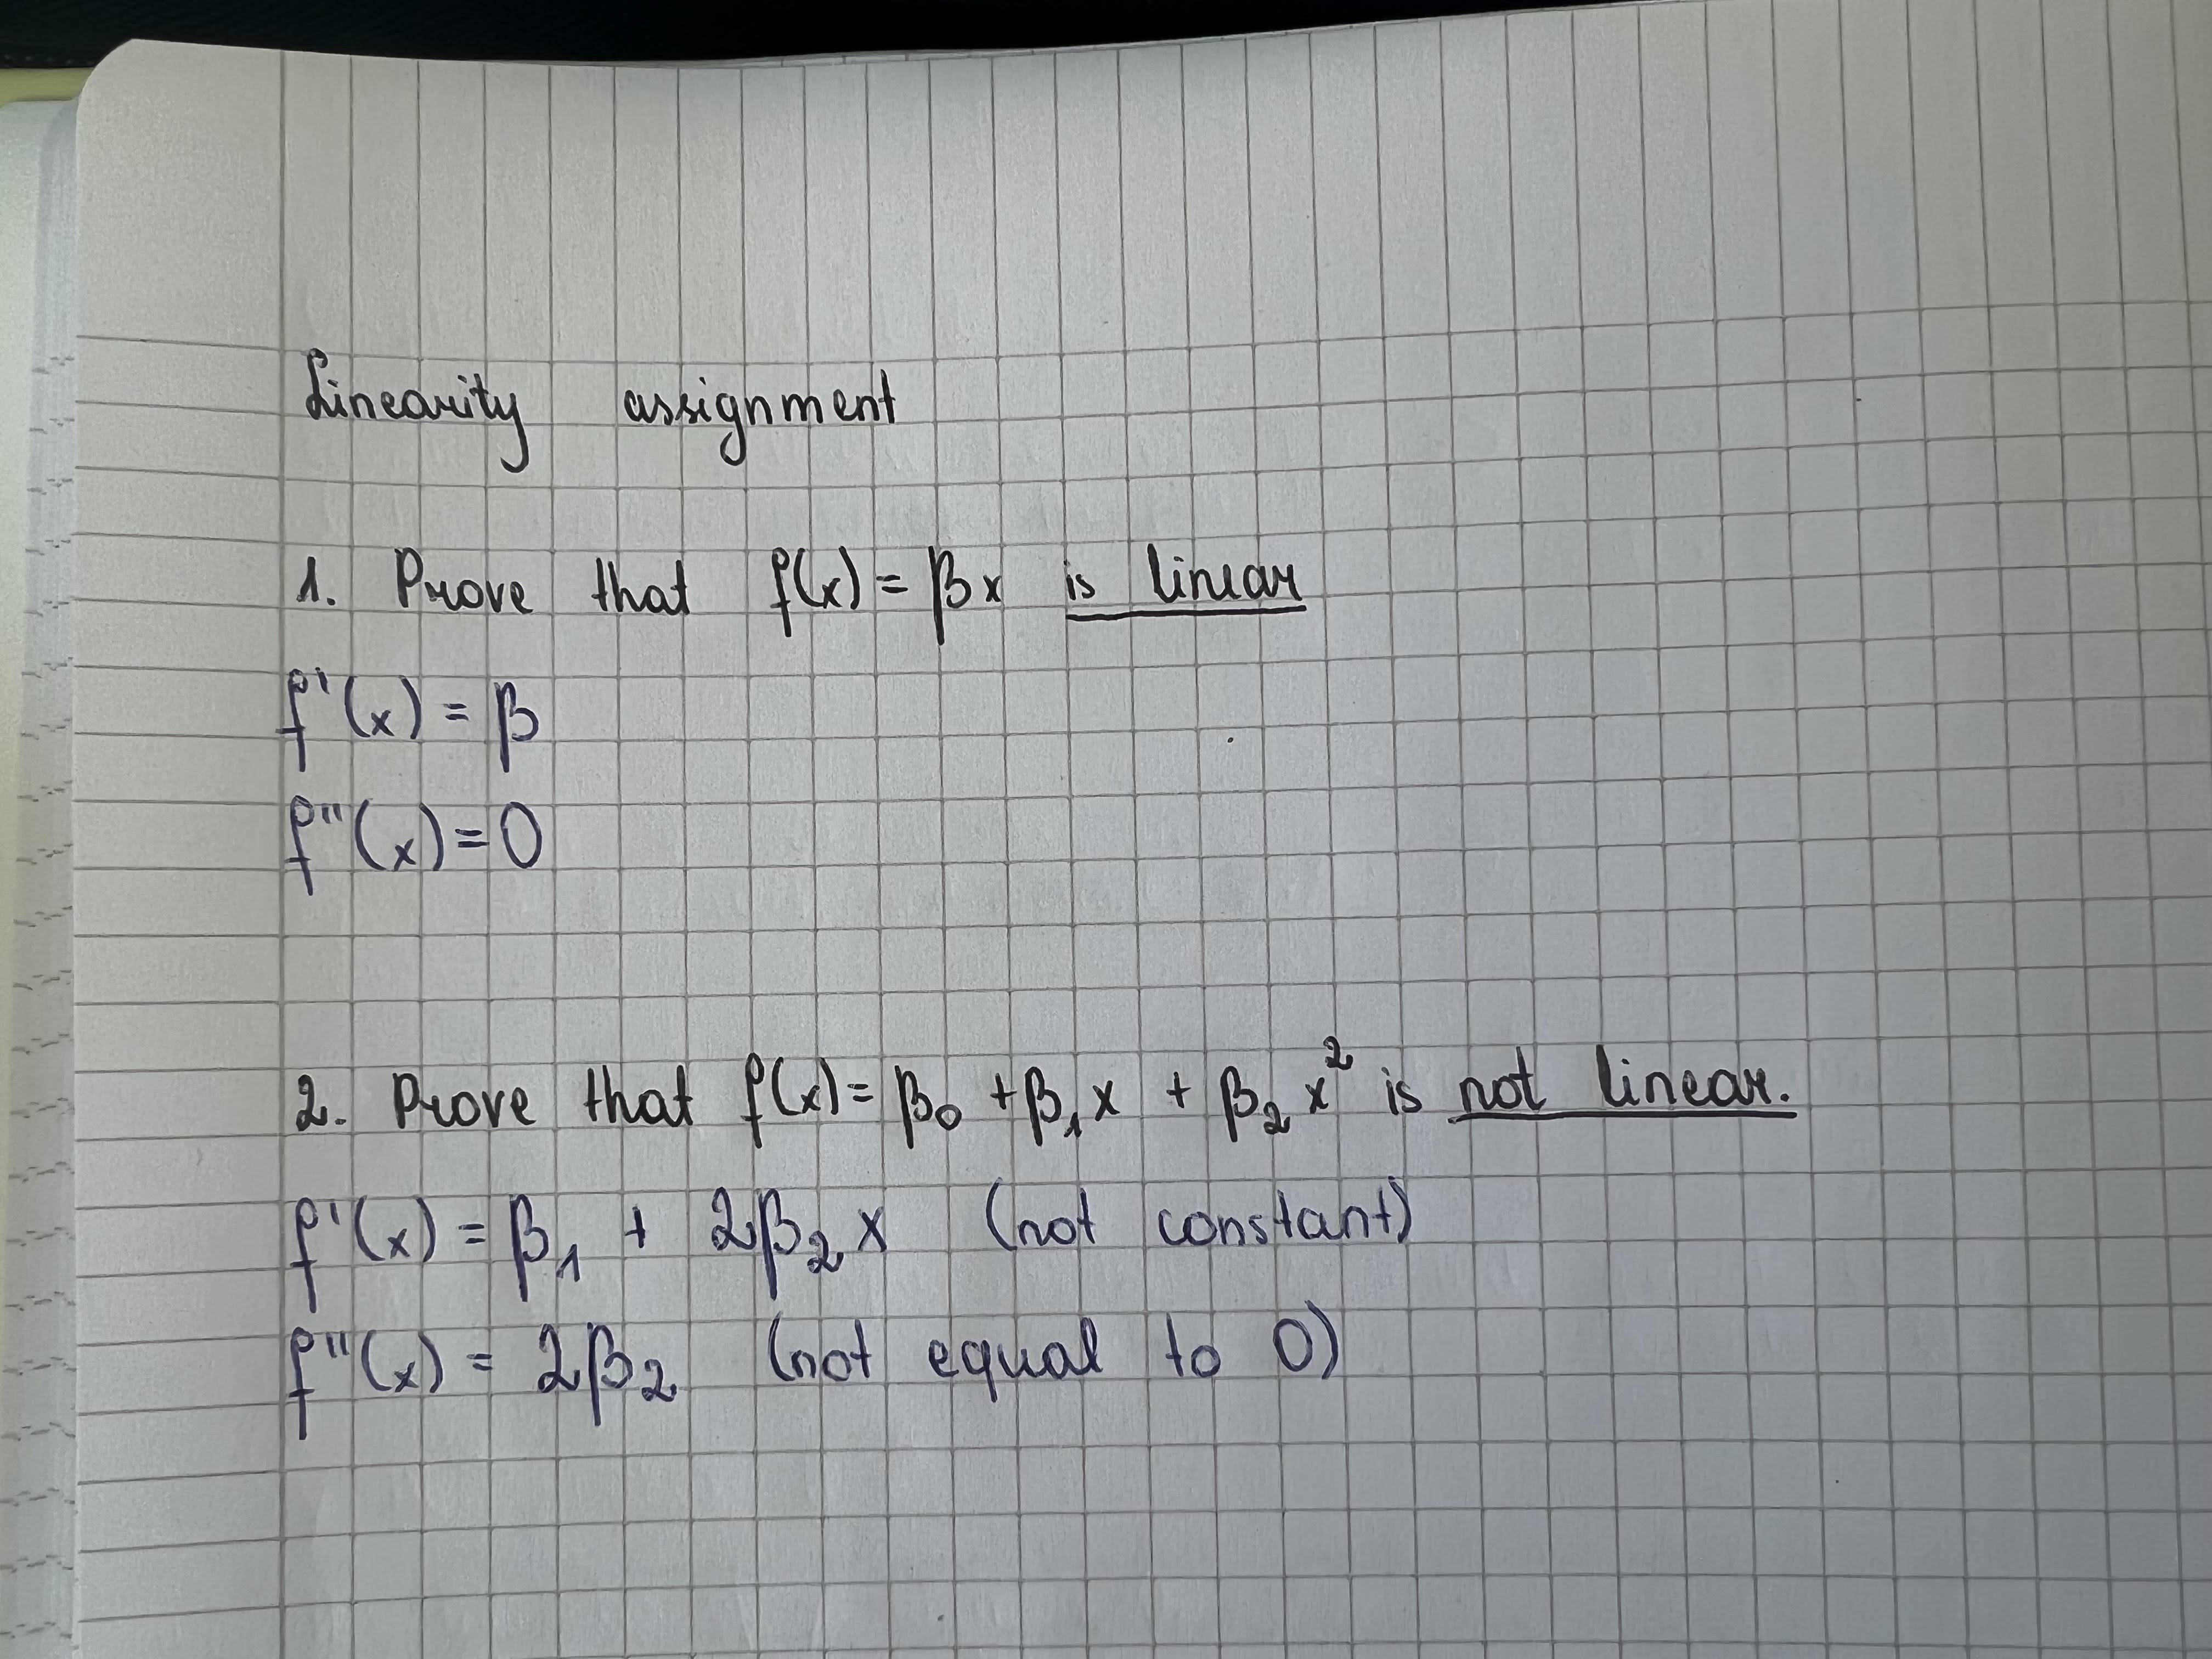 Linearity assignment
1. Prove that f(x) = βx is linear
f'(x) = β
f''(x) = 0
2. Prove that f(x) = β₀ + β₁x + β₂x² is not linear.
f'(x) = β₁ + 2β₂x (not constant)
f''(x) = 2β₂ (not equal to 0)